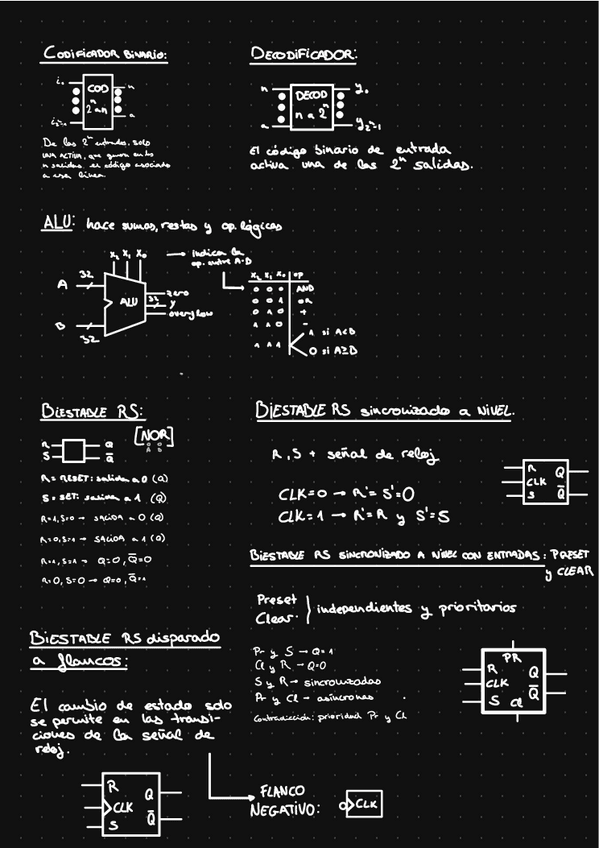 CODIFICADOR BINARIO:
i₀
COD
2ⁿ a n
n
a
De las 2ⁿ entradas, solo
UNA ACTIVA, que genera en las
n salidas, el código asociado
a esa línea.
DECODIFICADOR:
n
DECOD
n a 2ⁿ
a
y₀
y₂ⁿ-1
El código binario de entrada
activa una de las 2ⁿ salidas.
ALU: hace sumas, restas y op. lógicas
x₂ x₁ x₀
→ Indican la
op. entre A-B
A 32
B 32
ALU
zero
32 y
overflow
x₂ x₁ x₀ op
0 0 0 AND
0 0 1 OR
0 1 0 +
1 1 0 -
1 1 1
1 si A<B
0 si A≥B
BIESTABLE RS:
R
S
Q
Q̅
[NOR]
R = RESET: salida a 0 (Q)
S = SET: salida a 1 (Q)
R=1, S=0 → SALIDA a 0 (Q)
R=0, S=1 → SALIDA a 1 (Q)
R=1, S=1 → Q=0, Q̅=0
R=0, S=0 → Q=0, Q̅=1
BIESTABLE RS sincronizado a NIVEL.
R, S + señal de reloj
CLK=0 → R'=S'=0
CLK=1 → R'=R y S'=S
R
CLK
S
Q
Q̅
BIESTABLE RS SINCRONIZADO A NIVEL CON ENTRADAS: PRESET
y CLEAR
Preset
Clear.
independientes y prioritarios
Pr y S → Q=1
Cl y R → Q=0
S y R → sincronizadas
Pr y Cl → asíncronas
Contradicción: prioridad Pr y Cl
PR
R
CLK
S
Cl
Q
Q̅
BIESTABLE RS disparado
a flancos:
El cambio de estado solo
se permite en las transi-
ciones de la señal de
reloj.
R
CLK
S
Q
Q̅
→ FLANCO
NEGATIVO:
CLK